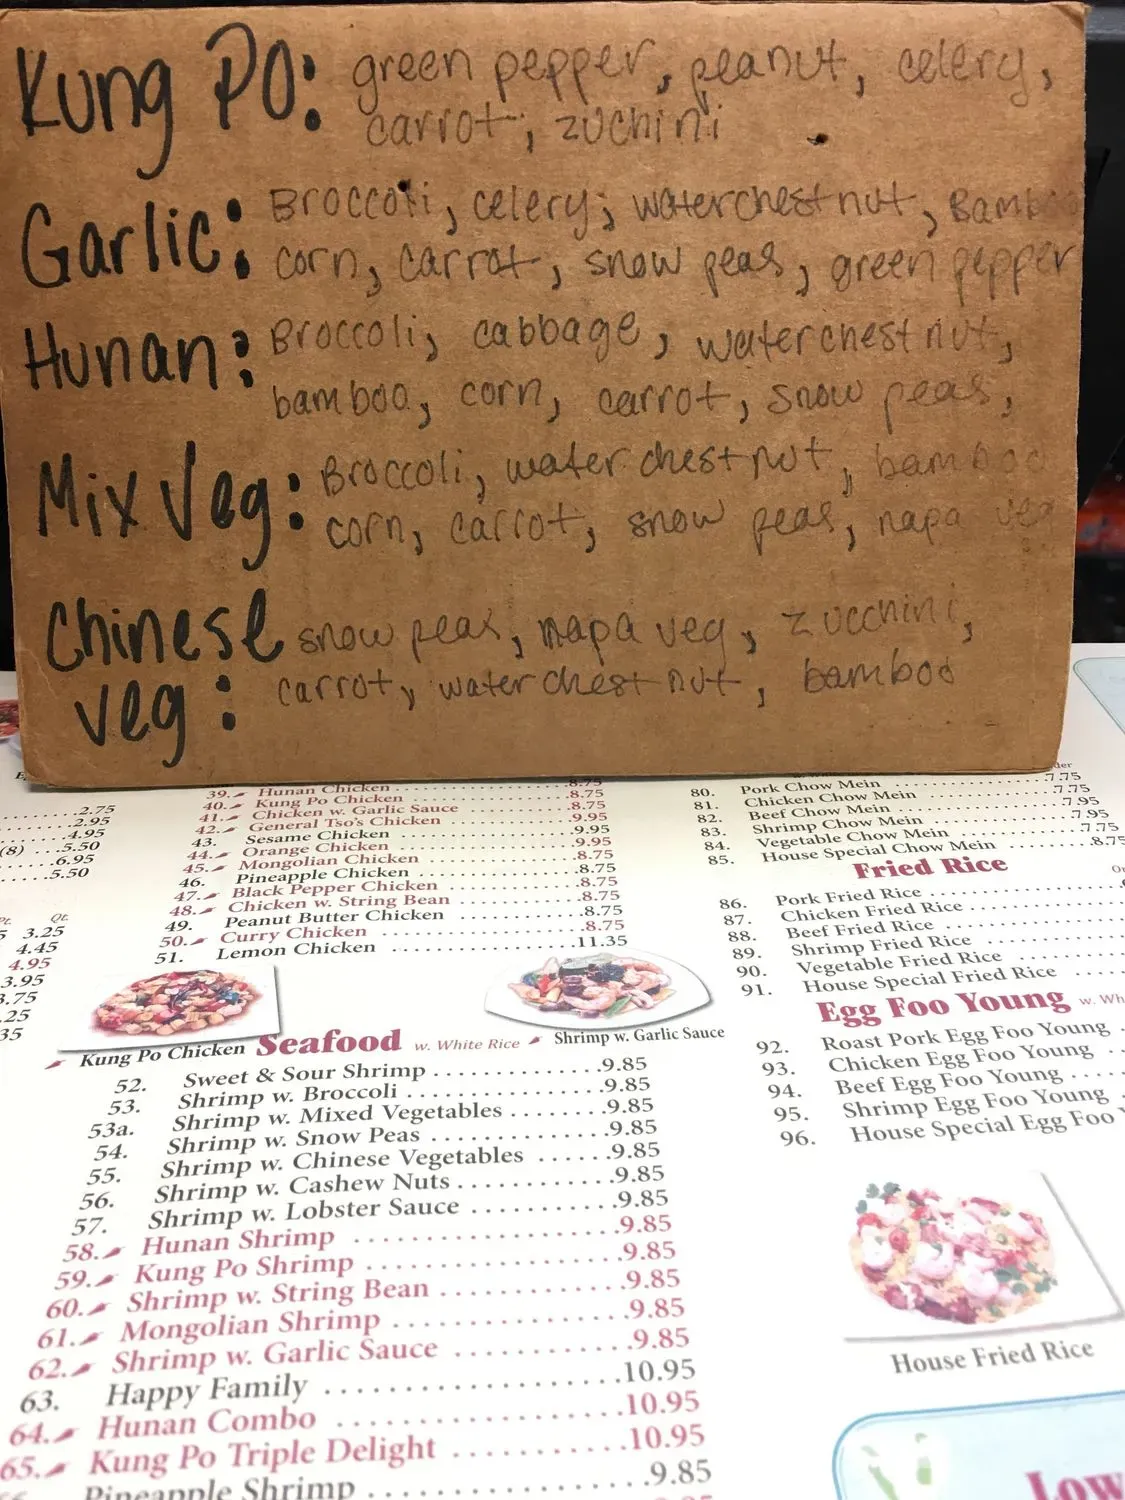 Kung Po: green pepper, peanut, celery,
carrot, zuchini
Garlic: Broccoli, celery, waterchestnut, Bamboo
corn, carrot, snow peas, green pepper
Hunan: Broccoli, cabbage, waterchestnut,
bamboo, corn, carrot, snow peas,
Mix Veg: Broccoli, water chestnut, bamboo
corn, carrot, snow peas, napa veg
Chinese snow peas, napa veg, zucchini,
veg: carrot, water chestnut, bamboo
2.75
2.95
4.95
(8) 5.50
6.95
5.50
Pt. Qt.
5 3.25
4.45
4.95
3.95
3.75
.25
35
39. Hunan Chicken 8.75
40. Kung Po Chicken 8.75
41. Chicken w. Garlic Sauce 8.75
42. General Tso's Chicken 9.95
43. Sesame Chicken 9.95
44. Orange Chicken 9.95
45. Mongolian Chicken 8.75
46. Pineapple Chicken 8.75
47. Black Pepper Chicken 8.75
48. Chicken w. String Bean 8.75
49. Peanut Butter Chicken 8.75
50. Curry Chicken 8.75
51. Lemon Chicken 11.35
Kung Po Chicken
Seafood w. White Rice
Shrimp w. Garlic Sauce
52. Sweet & Sour Shrimp 9.85
53. Shrimp w. Broccoli 9.85
53a. Shrimp w. Mixed Vegetables 9.85
54. Shrimp w. Snow Peas 9.85
55. Shrimp w. Chinese Vegetables 9.85
56. Shrimp w. Cashew Nuts 9.85
57. Shrimp w. Lobster Sauce 9.85
58. Hunan Shrimp 9.85
59. Kung Po Shrimp 9.85
60. Shrimp w. String Bean 9.85
61. Mongolian Shrimp 9.85
62. Shrimp w. Garlic Sauce 9.85
63. Happy Family 10.95
64. Hunan Combo 10.95
65. Kung Po Triple Delight 10.95
Pineapple Shrimp 9.85
80. Pork Chow Mein 7.75
81. Chicken Chow Mein 7.75
82. Beef Chow Mein 7.95
83. Shrimp Chow Mein 7.95
84. Vegetable Chow Mein 7.75
85. House Special Chow Mein 8.75
Fried Rice
86. Pork Fried Rice
87. Chicken Fried Rice
88. Beef Fried Rice
89. Shrimp Fried Rice
90. Vegetable Fried Rice
91. House Special Fried Rice
Egg Foo Young w. Wh
92. Roast Pork Egg Foo Young
93. Chicken Egg Foo Young
94. Beef Egg Foo Young
95. Shrimp Egg Foo Young
96. House Special Egg Foo Y
House Fried Rice
Low